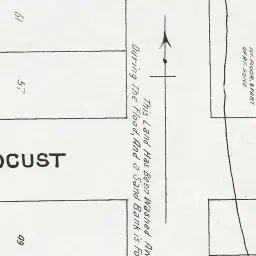 61
57
OCUST
49
This Land Has Been Washed An
During The Flood, And a Sand Bank is Fo